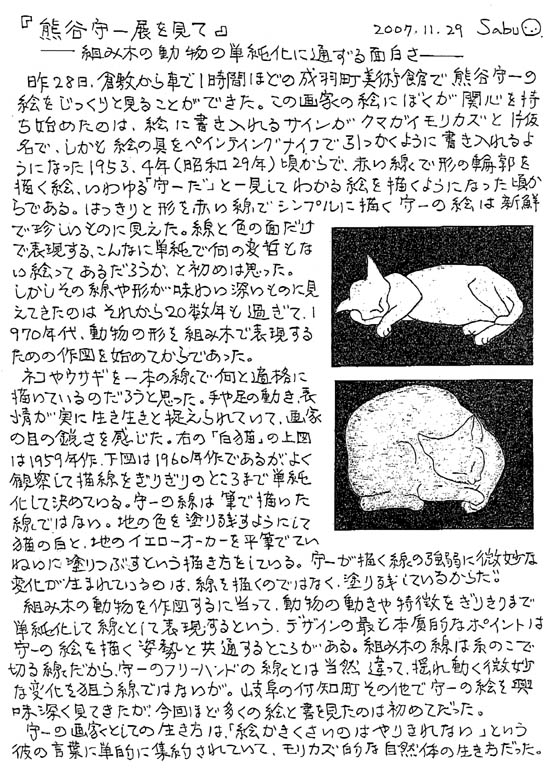 『熊谷守一展を見て』 2007.11.29 Sabu
――組み木の動物の単純化に通ずる面白さ――
昨28日、倉敷から車で1時間ほどの成羽町美術館で熊谷守一の
絵をじっくりと見ることができた。この画家の絵にぼくが関心を持
ち始めたのは、絵に書き入れるサインがクマガイモリカズと片仮
名で、しかも絵の具をペインティングナイフで引っかくように書き入れるよ
うになった1953、4年(昭和29年)頃からで、赤い線で形の輪郭を
描く絵、いわゆる“守一だ”と一見してわかる絵を描くようになった頃か
らである。はっきりと形を赤い線でシンプルに描く守一の絵は新鮮
で珍しいものに見えた。線と色の面だけ
で表現する、こんなに単純で何の変哲もな
い絵ってあるだろうか、と初めは思った。
しかしその線や形が味わい深いものに見
えてきたのはそれから20数年も過ぎて、1
970年代、動物の形を組み木で表現する
ための作図を始めてからであった。
ネコやウサギを一本の線で何と適格に
描いているのだろうと思った。手や足の動き、表
情が実に生き生きと捉えられていて、画家
の目の鋭さを感じた。右の「白猫」の上図
は1959年作、下図は1960年作であるがよく
観察して描線をぎりぎりのところまで単純
化して決めている。守一の線は筆で描いた
線ではない。地の色を塗り残すようにして
猫の白と、地のイエローオーカーを平筆でてい
ねいに塗りつぶすという描き方をしている。守一が描く線の強弱に微妙な
変化が生まれているのは、線を描くのではなく、塗り残しているからだ。
組み木の動物を作図するに当って、動物の動きや特徴をぎりぎりまで
単純化して線として表現するという、デザインの最も本質的なポイントは
守一の絵を描く姿勢と共通するところがある。組み木の線は糸のこで
切る線だから、守一のフリーハンドの線とは当然違って、揺れ動く微妙
な変化を狙う線ではないが。岐阜の付知町その他で守一の絵を興
味深く見てきたが、今回ほど多くの絵と書を見たのは初めてだった。
守一の画家としての生き方は、「絵かきくさいのはやりきれない」という
彼の言葉に単的に集約されていて、モリカズ的な自然体の生き方だった。